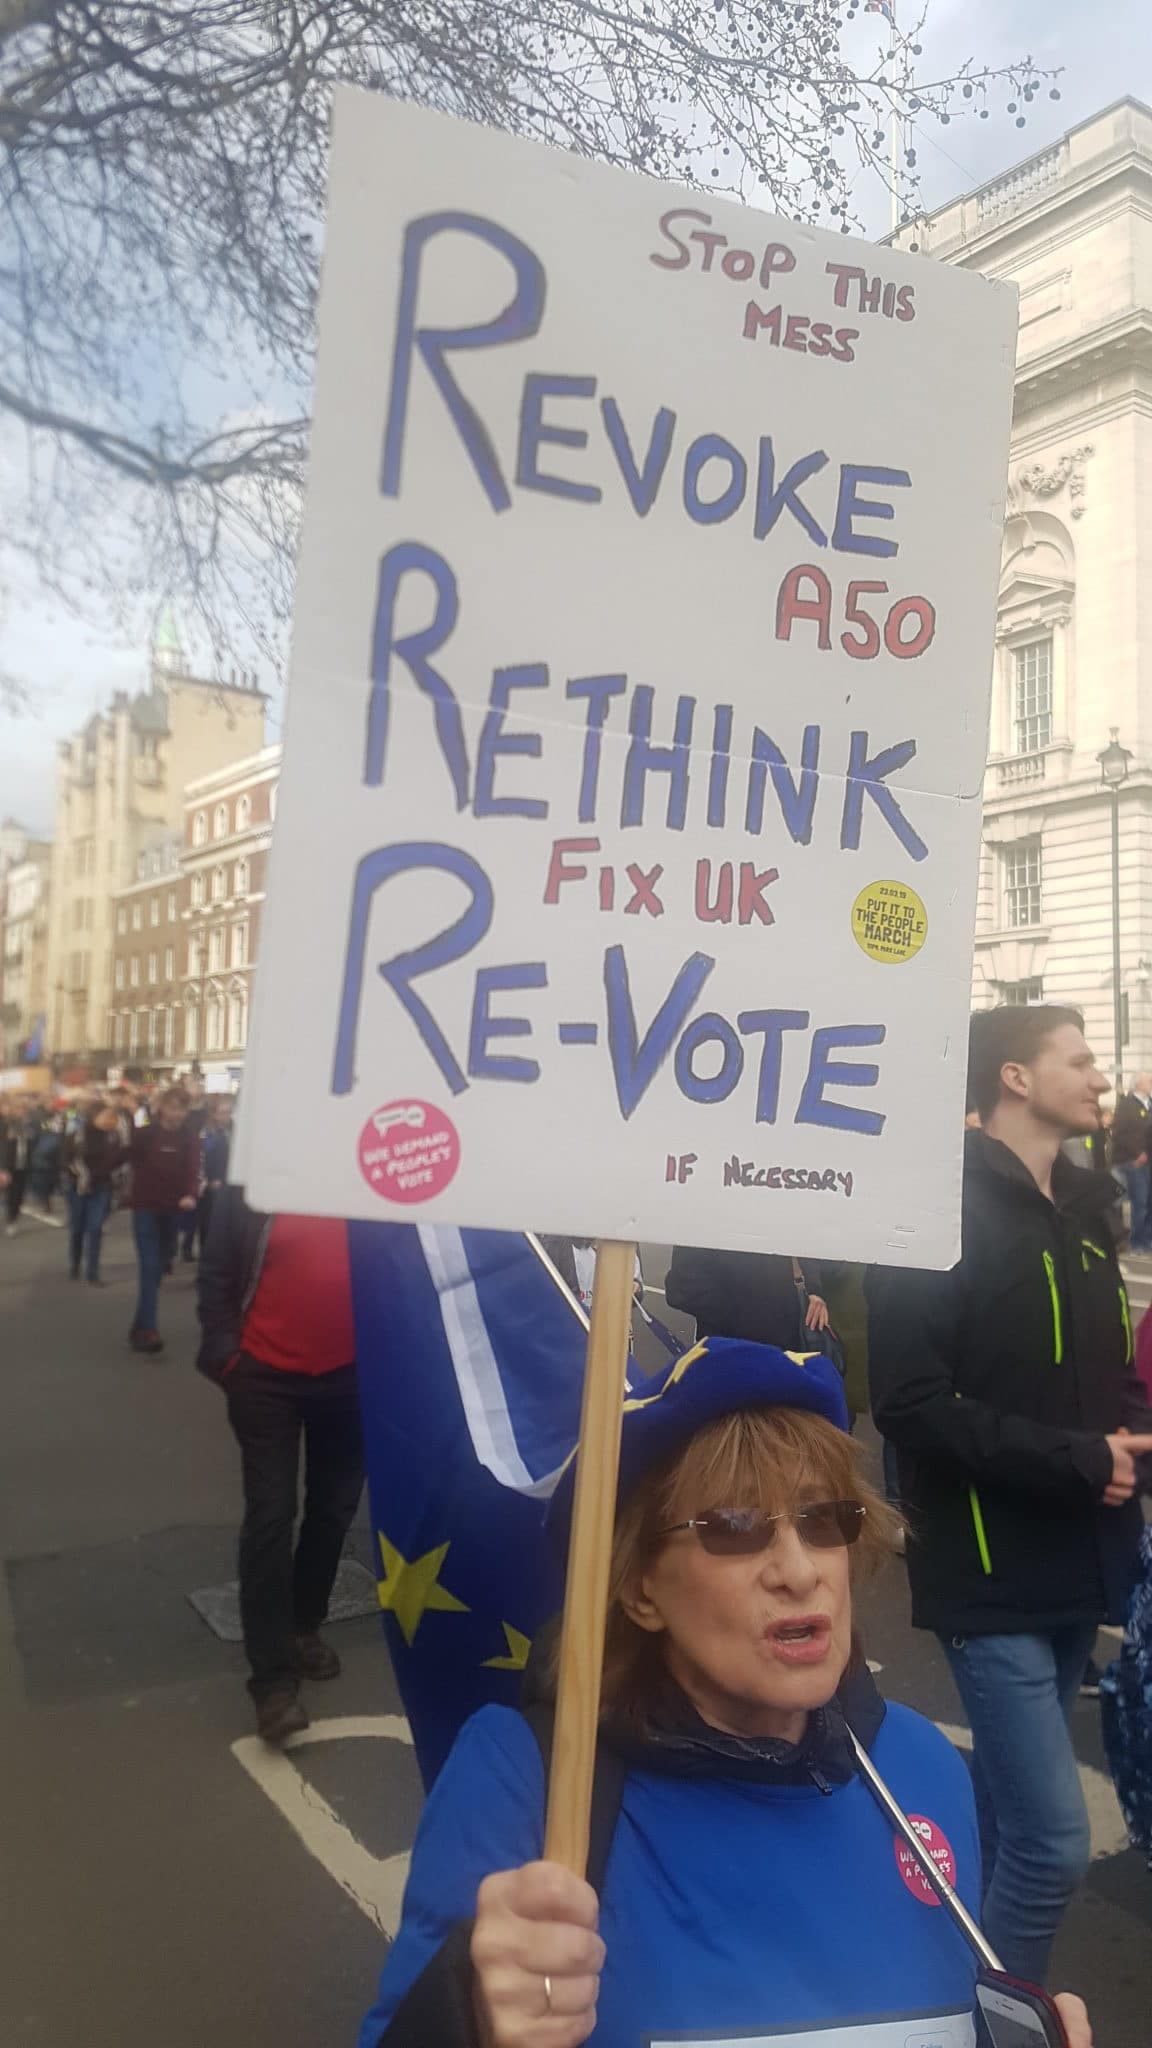 STOP THIS
MESS
REVOKE
A50
RETHINK
FIX UK
23.03.19
PUT IT TO
THE PEOPLE
MARCH
12PM, PARK LANE
RE-VOTE
WE DEMAND
A PEOPLE'S
VOTE
IF NECESSARY
WE DEMAND
A PEOPLE'S
VOTE